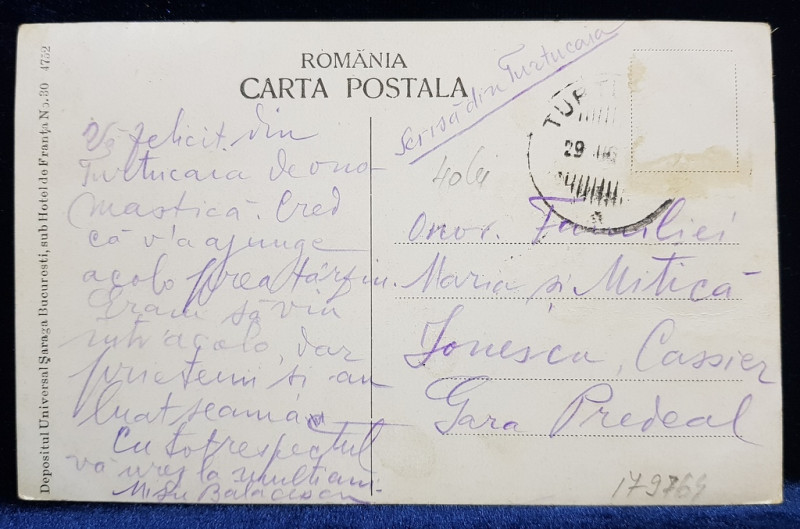 ROMÂNIA
CARTA POSTALA
Depositul Universal Șaraga Bucuresti, sub Hotel de Franța No. 30 4752
Scrisă din Turtucaia
TURT
29
40 lei
Vă felicit din
Turtucaia de ono-
mastică. Cred
că v'a ajunge
acolo prea târziu.
Eram să vin
intr'acolo, dar
prietenii și au
luat seama
Cu tot respectul
vă urez la mulți ani
Onor. Familiei
Maria și Mitică
Ionescu, Cassier
Gara Predeal
179764